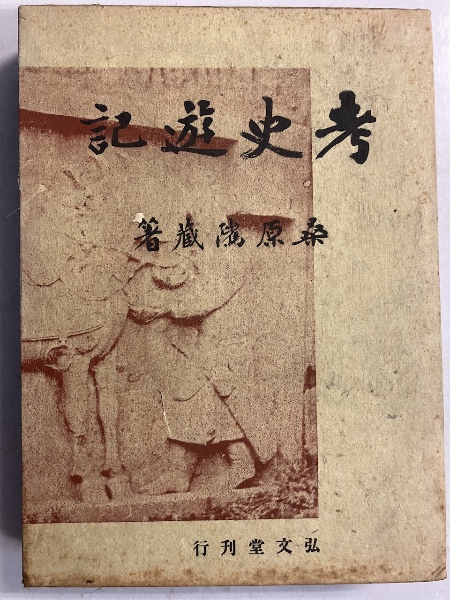 考史遊記
桑原隲藏著
弘文堂刊行